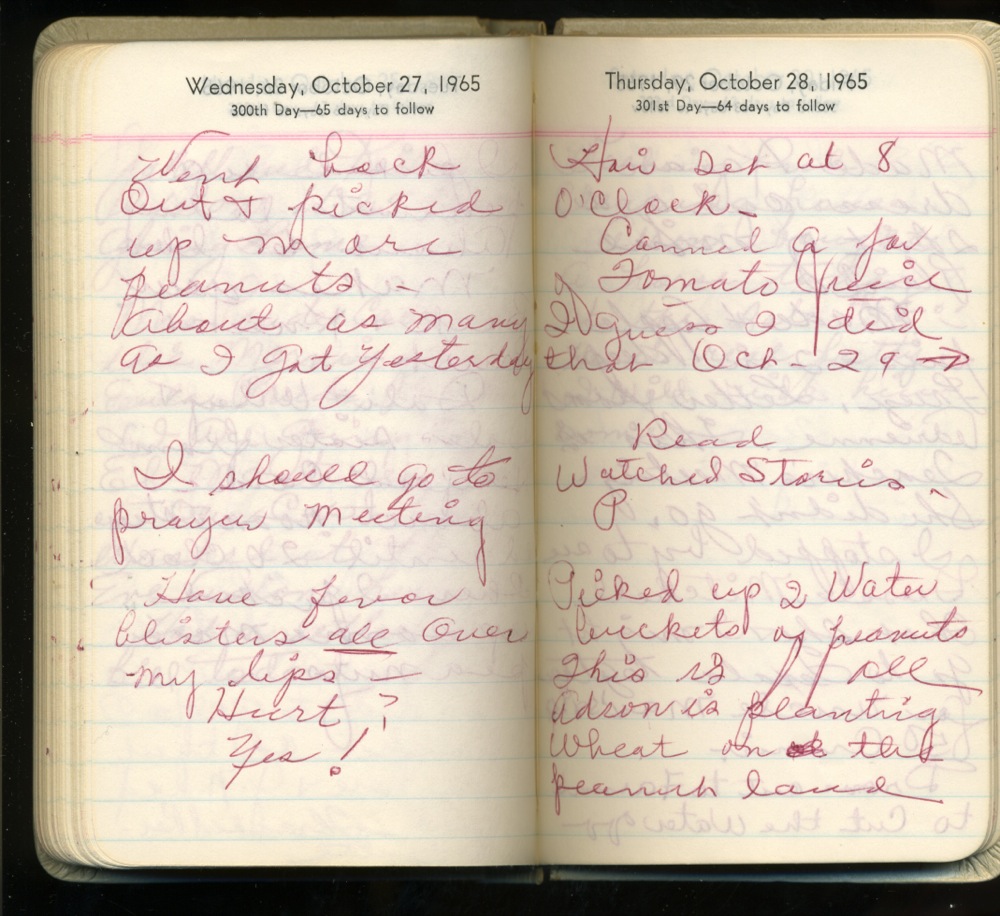 Wednesday, October 27, 1965
300th Day—65 days to follow
Went back
Out & picked
up more
peanuts -
About as many
as I got yesterday
I should go to
prayer meeting
Have fevor
blisters all over
my lips —
Hurt?
Yes!
Thursday, October 28, 1965
301st Day—64 days to follow
Hair Set at 8
O'Clock -
Canned a jar
of Tomato Juice
I guess I did
that Oct - 29 →
Read
Watched Stories.
P
Picked up 2 Water
buckets of peanuts
This is all
Adron is planting
Wheat on the
peanut land